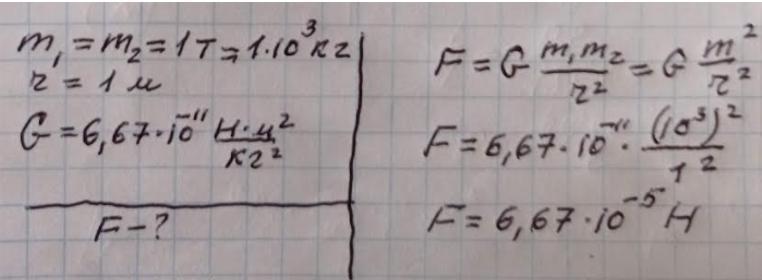 m₁ = m₂ = 1 т = 1·10³ кг
r = 1 м
G = 6,67·10⁻¹¹ Н·м²/кг²
F - ?
F = G m₁m₂/r² = G m²/r²
F = 6,67·10⁻¹¹· (10³)²/1²
F = 6,67·10⁻⁵ Н